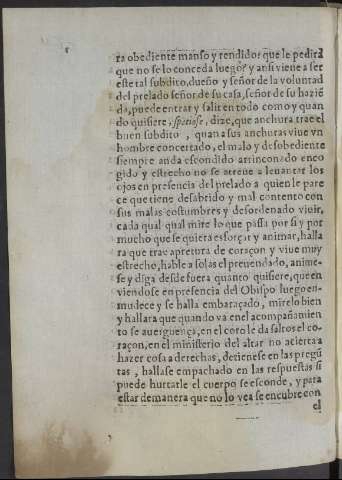 ra obediente manso y rendido: que le pedira
que no se lo conceda luego? y ansi viene a ser
este tal subdito, dueño y señor de la voluntad
del prelado señor de su casa, señor de su haziē
da, puede entrar y salir en todo como y quan
do quisiere, spatiose, dize, que anchura trae el
buen subdito, quan a sus anchuras viue vn
hombre concertado, el malo y desobediente
siempre anda escondido arrinconado enco
gido y estrecho no se atreue a leuantar los
ojos en presencia del prelado a quien le pare
ce que tiene desabrido y mal contento con
sus malas costumbres y desordenado viuir,
cada qual qual mire lo que passa por si y por
mucho que se quiera esforçar y animar, halla
ra que trae apretura de coraçon y viue muy
estrecho, hable a solas el preuendado, anime-
se y diga desde fuera quanto quisiere, que en
viendose en presencia del Obispo luego en-
mudece y se halla embaraçado, mirelo bien
y hallara que quando va en el acompañamien
to se auerguença, en el coro le da saltos el co-
raçon, en el ministerio del altar no acierta a
hazer cosa a derechas, detienese en las pregū
tas, hallase empachado en las respuestas si
puede hurtarle el cuerpo se esconde, y para
estar de manera que no lo vea se encubre con
el